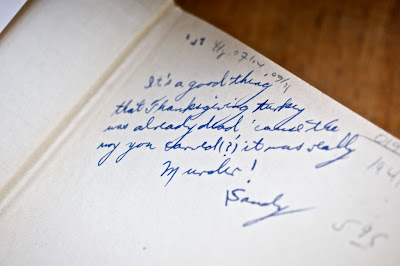 It's a good thing
that Thanksgiving turkey
was already dead, 'cause the
way you carved(?), it was really
Murder!
Sandy
595